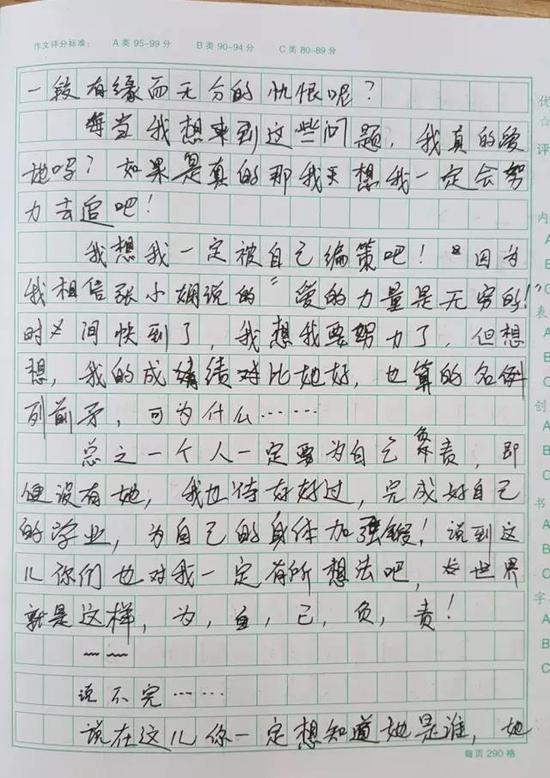 作文评分标准： A类 95-99分 B类 90-94分 C类 80-89分
一段有缘而无分的仇恨呢？
每当我想来到这些问题，我真的爱
她吗？如果是真的那我天想我一定会努
力去追吧！
我想我一定被自己编策吧！因为
我相信张小娴说的“爱的力量是无穷的！”
时间快到了，我想我要努力了，但想
想，我的成绩对比她好，也算的名例
列前矛，可为什么……
总之一个人一定要为自己负责，即
便没有她，我也待好好过，完成好自己
的学业，为自己的身体加强锻！说到这
儿你们也对我一定有所想法吧，世界
就是这样，为，自，己，负，责！
~~
说不完……
说在这儿你一定想知道她是谁，她
每页290格
优
☆
评
内
A
B
C
表
A
B
C
创
A
B
C
书
A
C
字
A
B
C